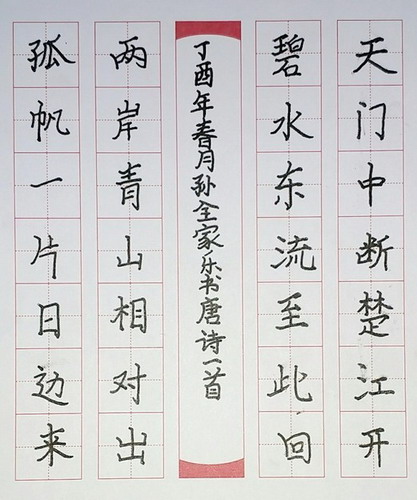 天门中断楚江开
碧水东流至此回
丁酉年春月孙全家乐书唐诗一首
两岸青山相对出
孤帆一片日边来